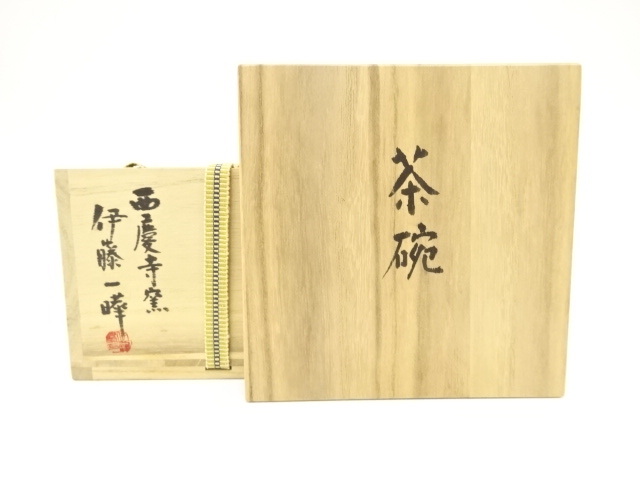 茶碗
西慶寺窯
伊藤一曄